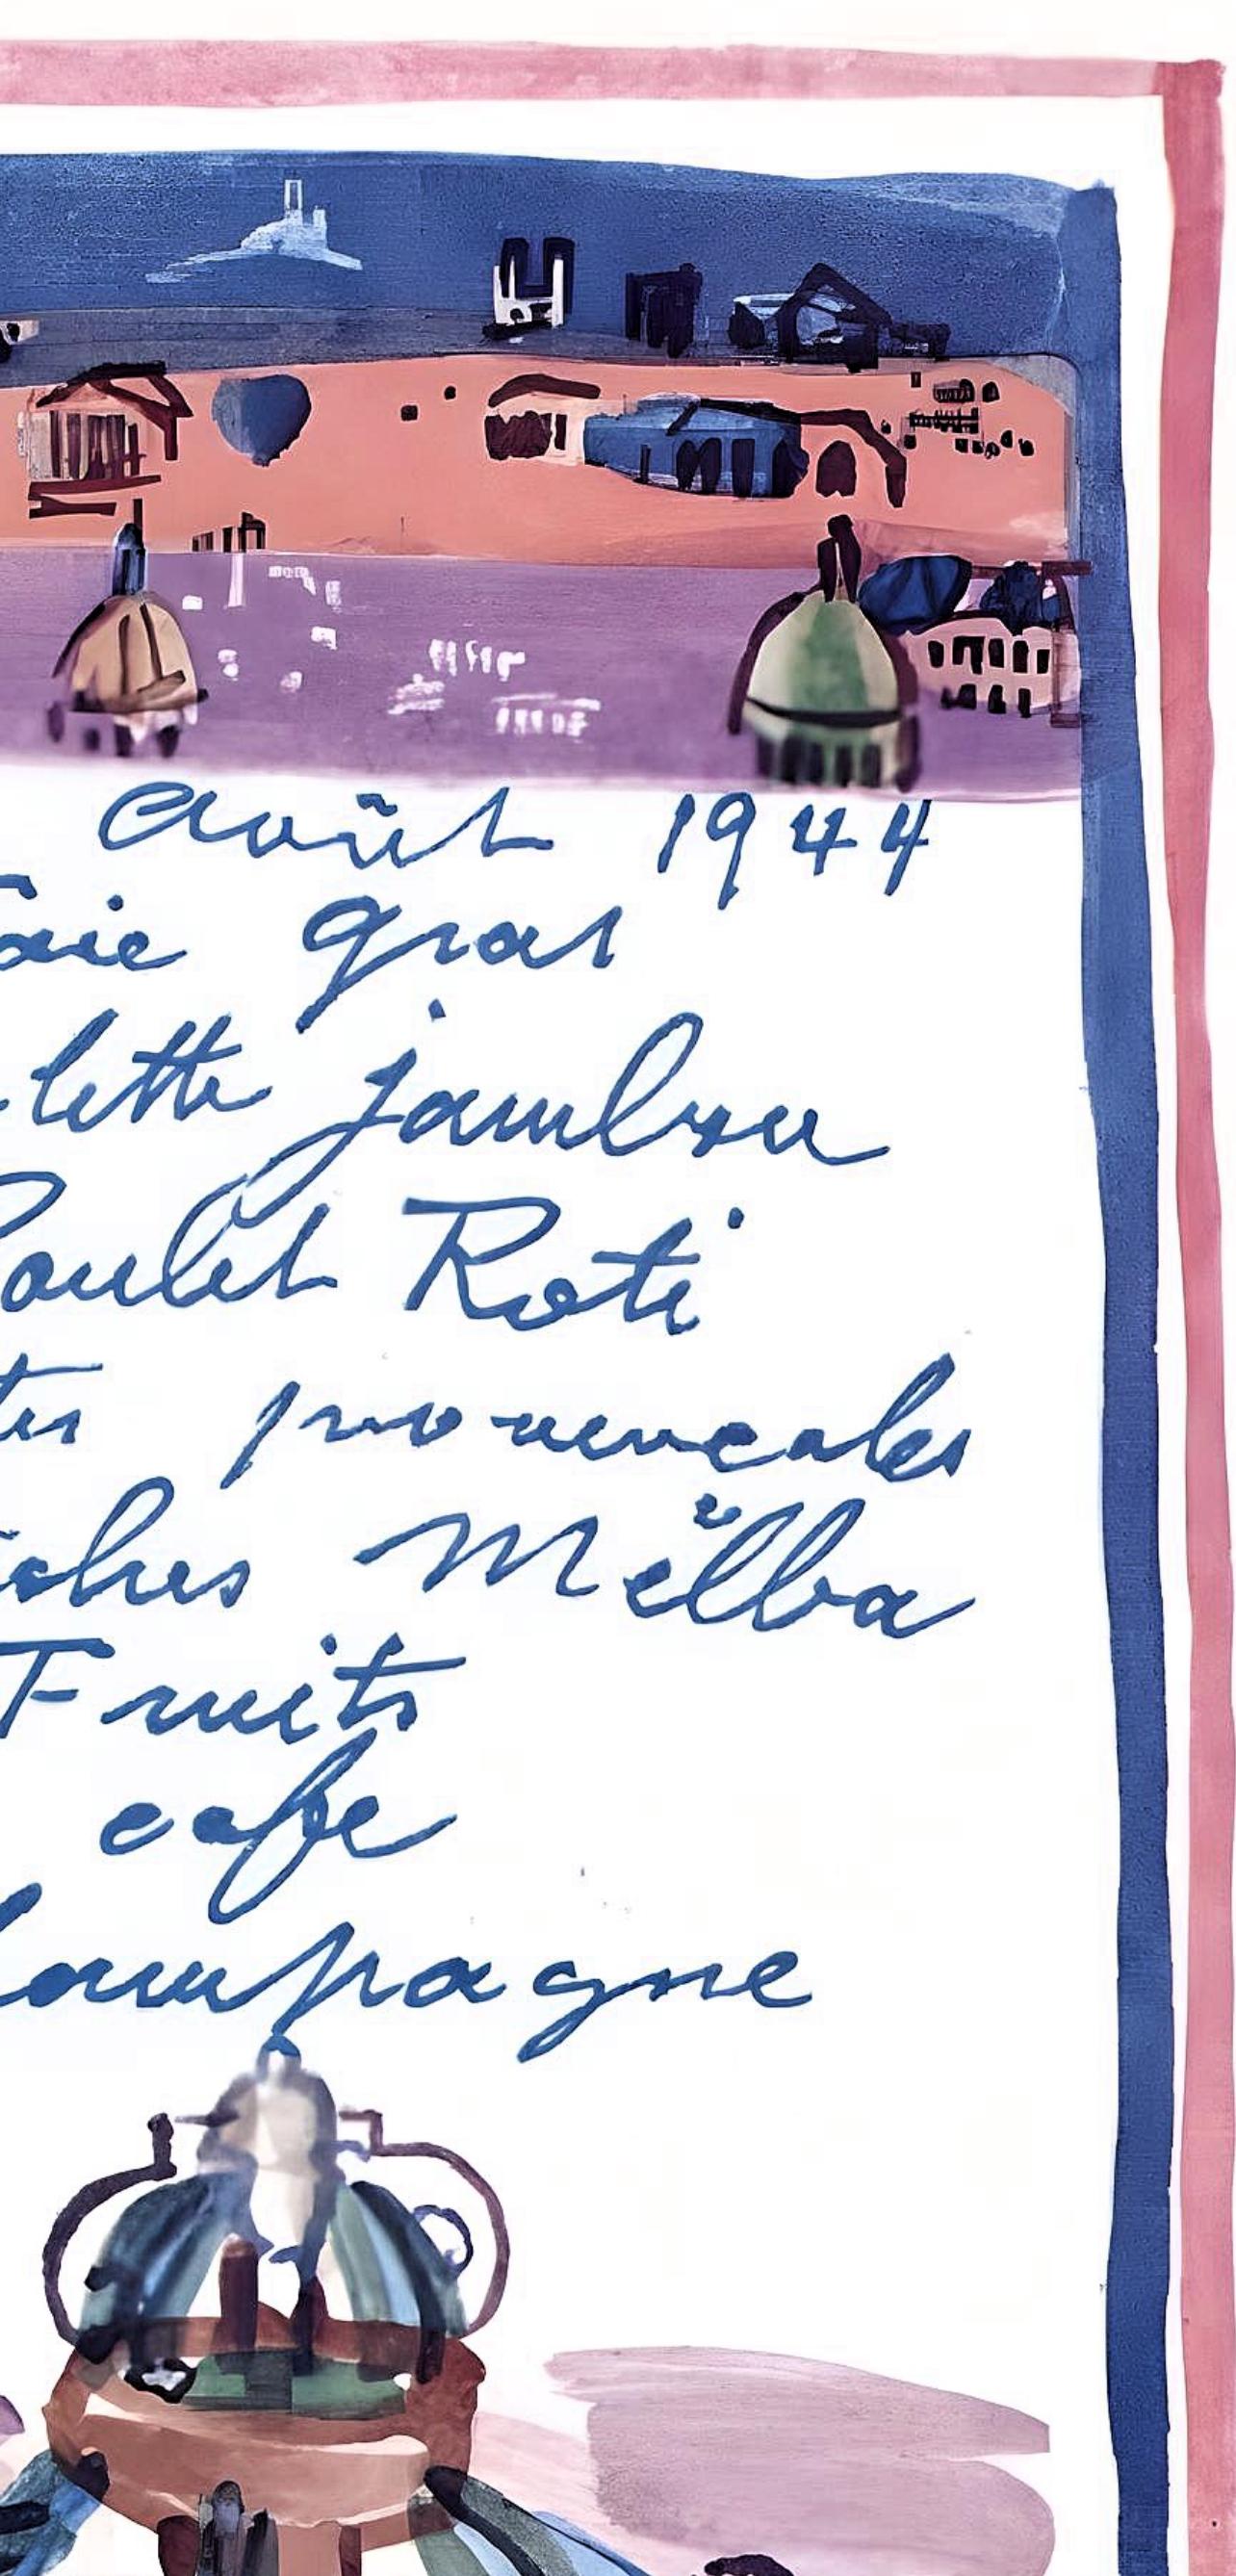 Août 1944
Foie gras
lette jambon
Poulet Roti
tes provencales
êches Melba
Fruits
cafe
hampagne